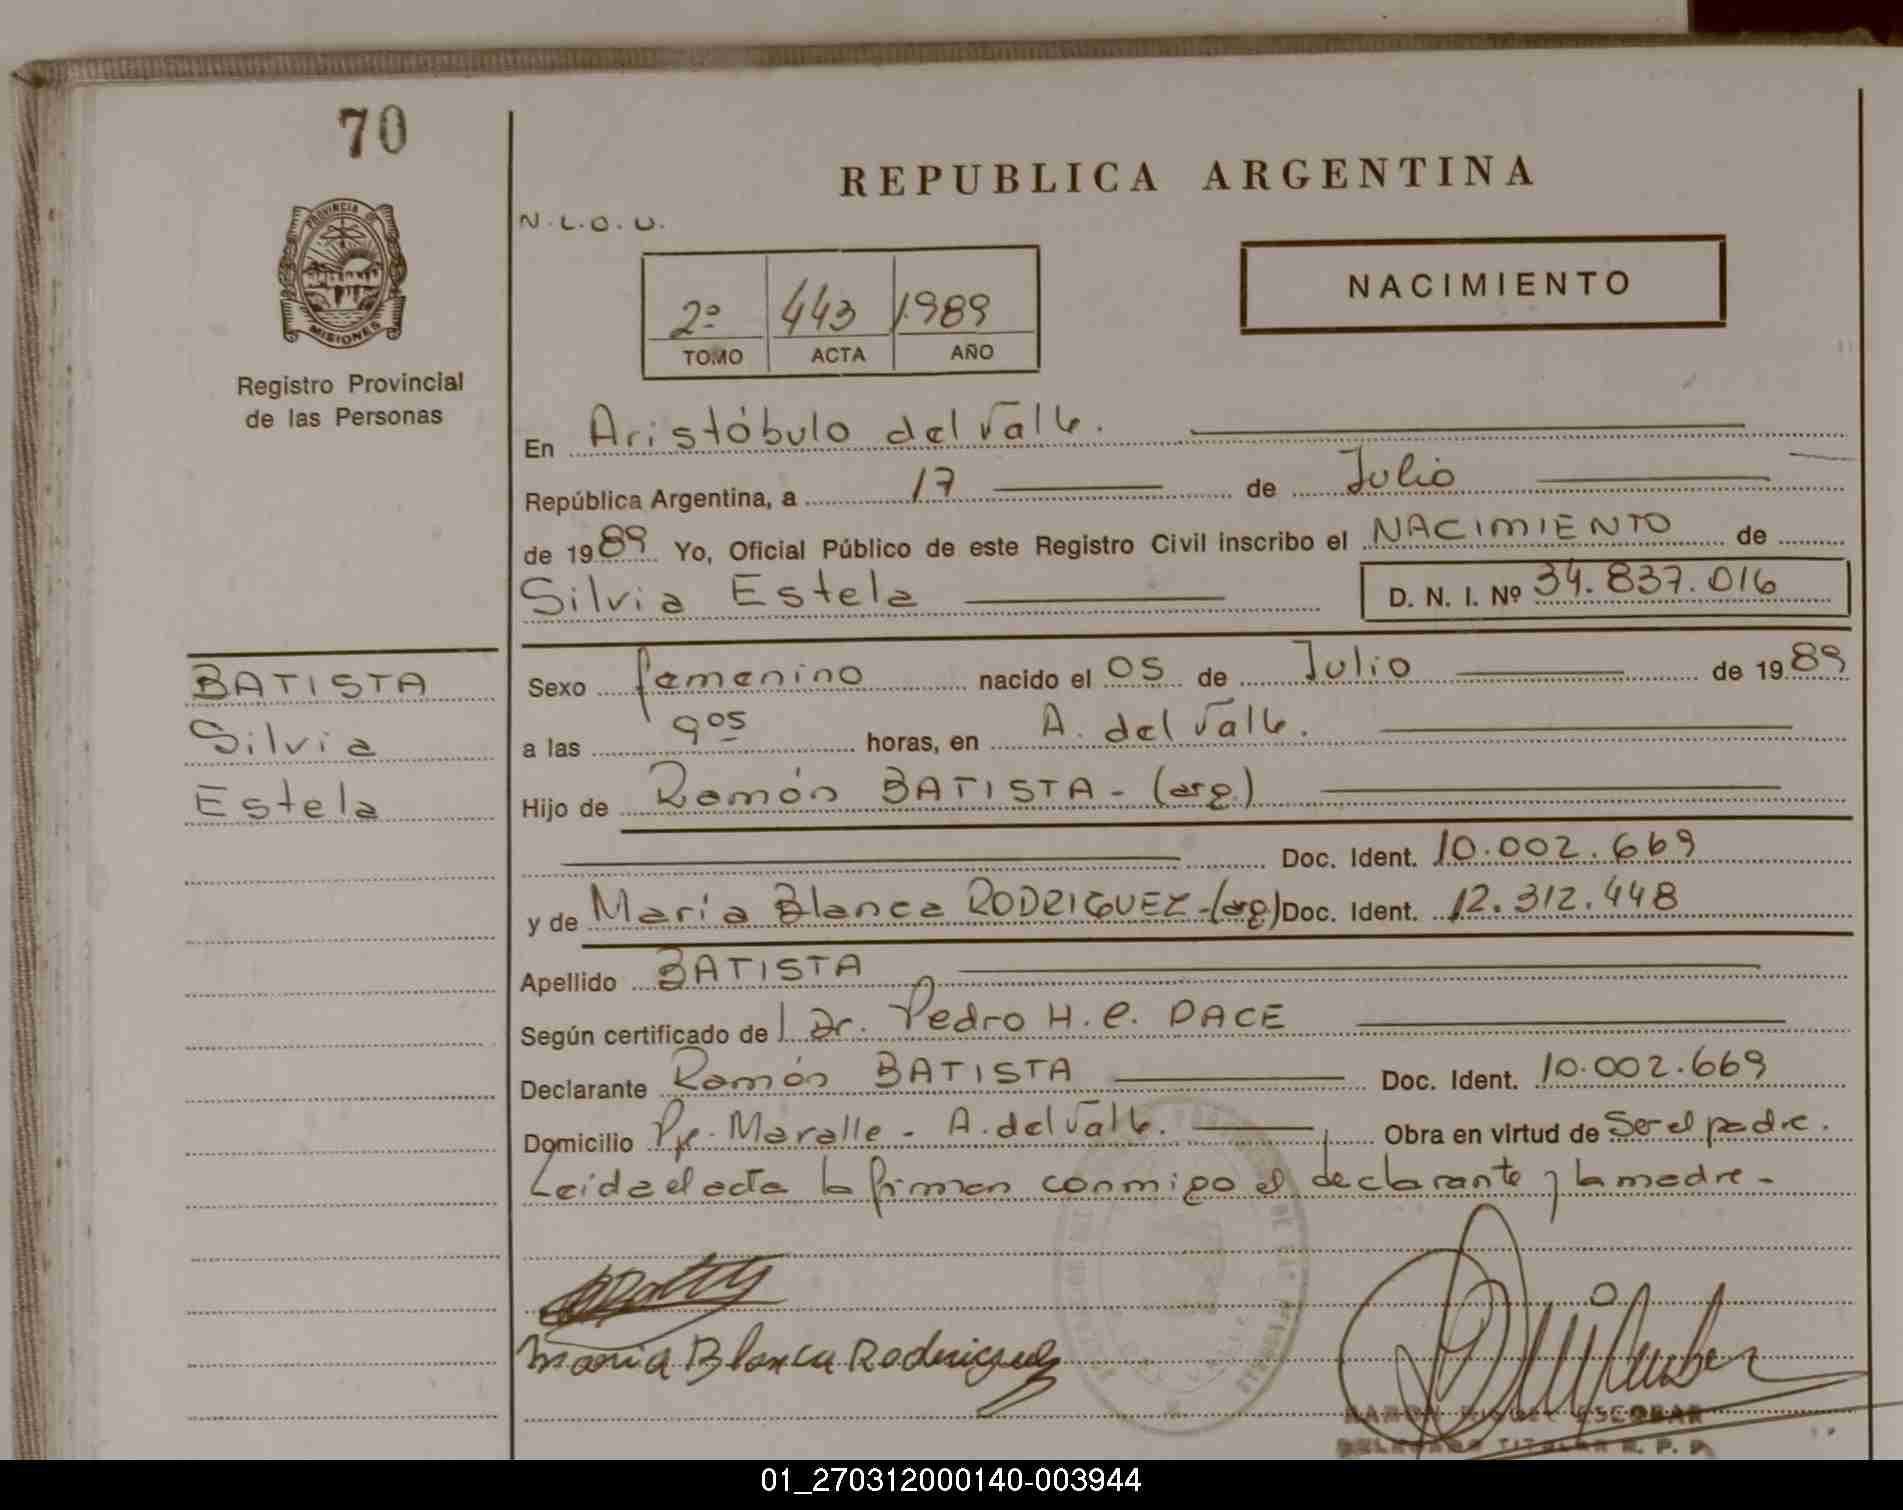 70
REPUBLICA ARGENTINA
N.L.O.U.
PROVINCIA DE
MISIONES
Registro Provincial
de las Personas
2º 443 1989
TOMO ACTA AÑO
NACIMIENTO
En Aristóbulo del Valle.
República Argentina, a 17 de Julio
de 1989 Yo, Oficial Público de este Registro Civil inscribo el NACIMIENTO de
Silvia Estela D. N. I. Nº 34.837.016
BATISTA
Silvia
Estela
Sexo femenino nacido el 05 de Julio de 1989
a las 9 05 horas, en A. del Valle.
Hijo de Ramón BATISTA - (arg.)
Doc. Ident. 10.002.669
y de María Blanca RODRIGUEZ - (arg) Doc. Ident. 12.312.448
Apellido BATISTA
Según certificado de l Dr. Pedro H. C. DACE
Declarante Ramón BATISTA Doc. Ident. 10.002.669
Domicilio Pje. Maralle - A. del Valle. Obra en virtud de Ser el padre.
Leida el acta la firman conmigo el declarante y la madre -
Maria Blanca Rodriguez
RAMON MIGUEL ESCOBAR
DELEGADO TITULAR R. P. P.
01_270312000140-003944